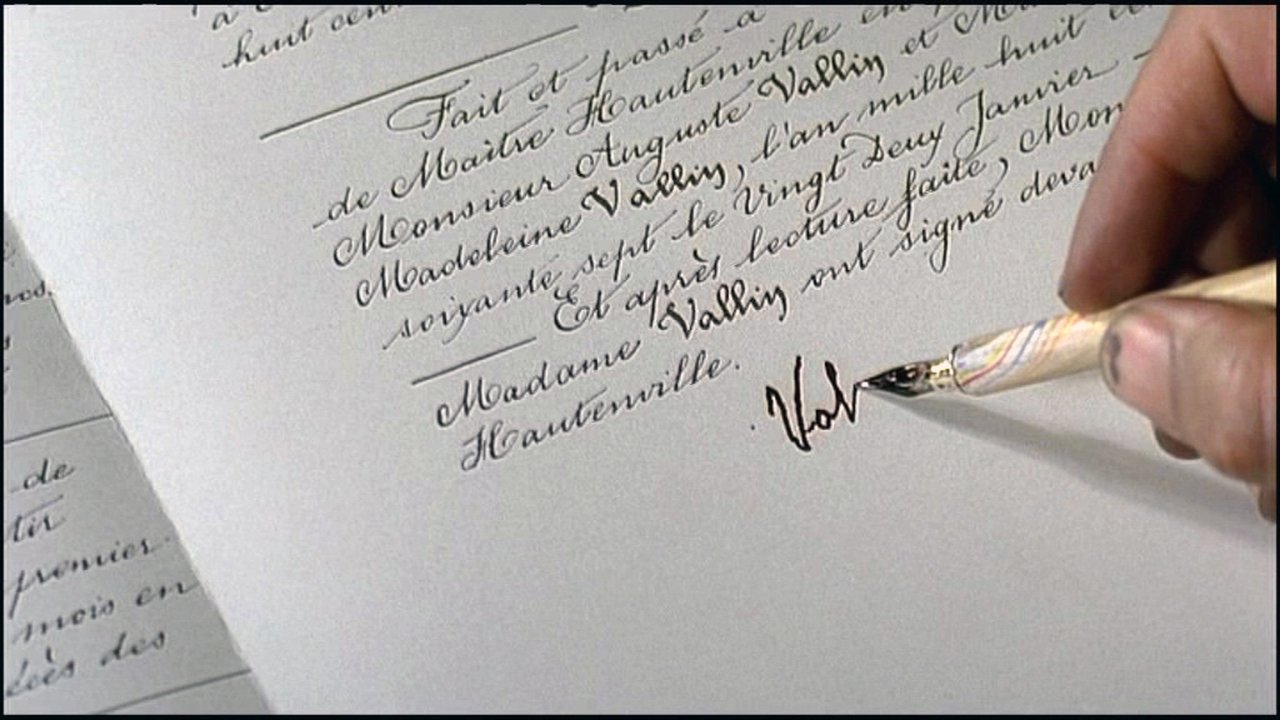 huit cent
Fait et passé à
de Maître Hautenville en
Monsieur Auguste Vallin et
Madeleine Vallin, l'an mille huit
soixante sept le Vingt Deux Janvier
Et après lecture faite, Mon
Madame Vallin ont signé deva
Hautenville.
Val
de
tir
premier
mois en
des